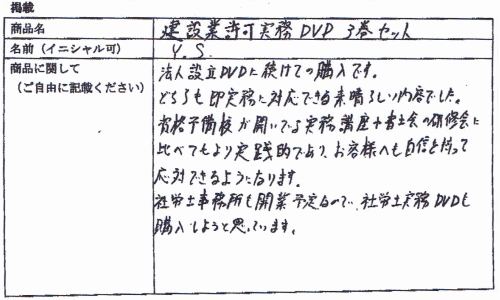 掲載
商品名 建設業許可実務DVD 3巻セット
名前(イニシャル可) Y.S.
商品に関して 法人設立DVDに続けての購入です。
(ご自由に記載ください) どちらも即実務に対応できる素晴らしい内容でした。
資格予備校が開いてる実務講座や書士会の研修会に
比べてもより実践的であり、お客様へも自信を持って
応対できるようになります。
社労士事務所も開業予定なので、社労士実務DVDも
購入しようと思っています。